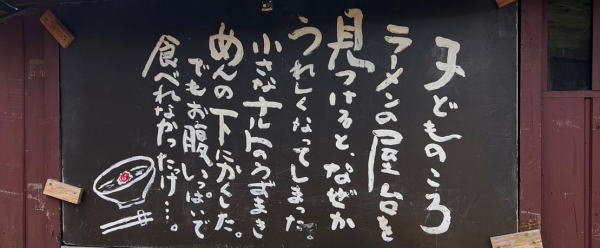 子どものころ
ラーメンの屋台を
見つけると、なぜか
うれしくなってしまった。
小さなナルトのうずまき
めんの下にかくした。
でもお腹いっぱいで
食べれなかったっけ…。